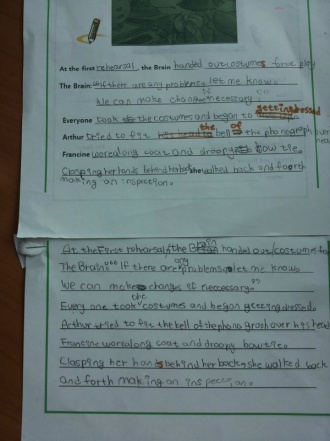 At the first rehearsal, the Brain handed out costumes for a play
The Brain: if there are any problems let me know.
We can make changes if necessary.
Everyone took the costumes and began to getting dressed
Arthur tried to fit the bell of the phonograph over
Francine wore a long coat and droopy bow tie.
Clasping her hands behind her back, she walked back and foorth
making an inspection.
At the First rehearsal, the Brain handed out costumes fo
The Brain: If there are any problems let me know.
We can make changes if neccessary.
Every one took the costumes and began geteing dressed.
Arthur tried to fit the bell of the phonograph over his head
Francine wore a long coat and droopy bow tie.
Clasping her hands behind her back, she walked back
and forth making an inspeccion.